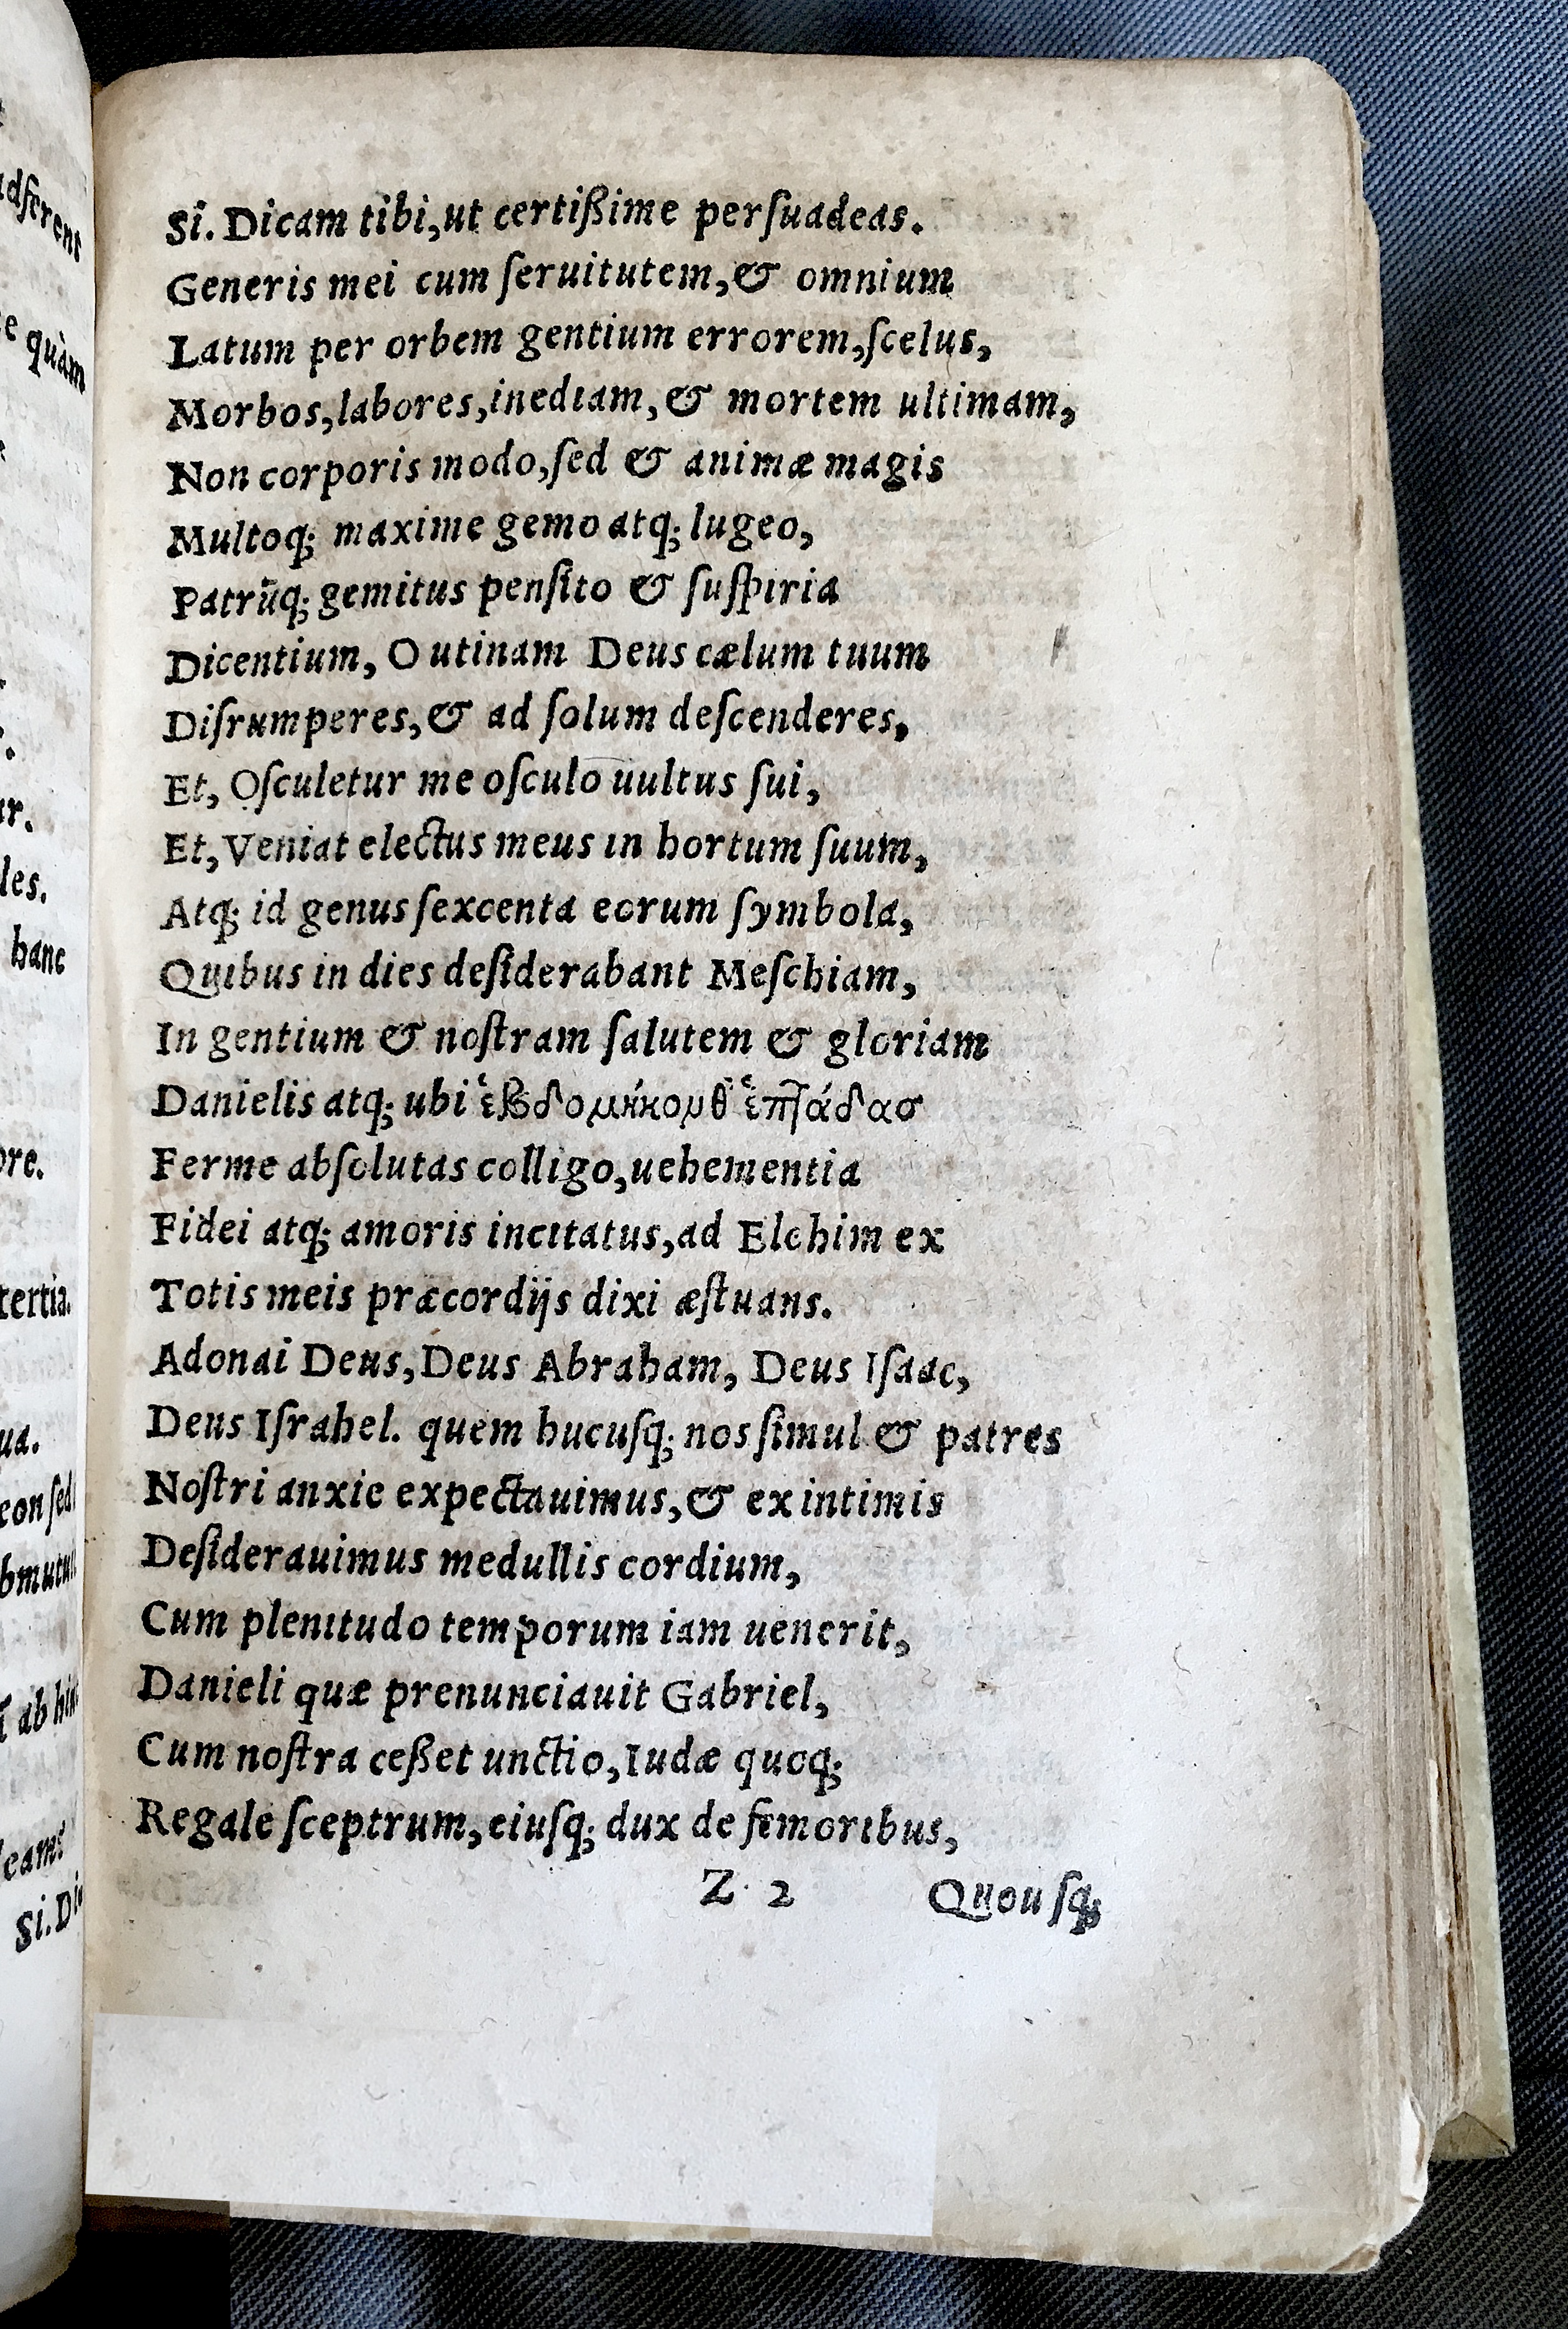 Si. Dicam tibi, ut certißime perſuadeas.
Generis mei cum ſeruitutem, & omnium
Latum per orbem gentium errorem, ſcelus,
Morbos, labores, inediam, & mortem ultimam,
Non corporis modo, ſed & animæ magis
Multoq; maxime gemo atq; lugeo,
Patrūq; gemitus penſito & ſuſpiria
Dicentium, O utinam Deus cælum tuum
Diſrumperes, & ad ſolum deſcenderes,
Et, Oſculetur me oſculo uultus ſui,
Et, Veniat electus meus in hortum ſuum,
Atq; id genus ſexcenta eorum ſymbola,
Quibus in dies deſiderabant Meſchiam,
In gentium & noſtram ſalutem & gloriam
Danielis atq; ubi ἑβδομήκονθ ἑπτάδασ
Ferme abſolutas colligo, uehementia
Fidei atq; amoris incitatus, ad Elohim ex
Totis meis præcordijs dixi æſtuans.
Adonai Deus, Deus Abraham, Deus Iſaac,
Deus Iſrahel. quem hucuſq; nos ſimul & patres
Noſtri anxie expectauimus, & ex intimis
Deſiderauimus medullis cordium,
Cum plenitudo temporum iam uenerit,
Danieli quæ prenunciauit Gabriel,
Cum noſtra ceßet unctio, Iudæ quoq;
Regale ſceptrum, eiuſq; dux de femoribus,
Z 2 Quouſq;